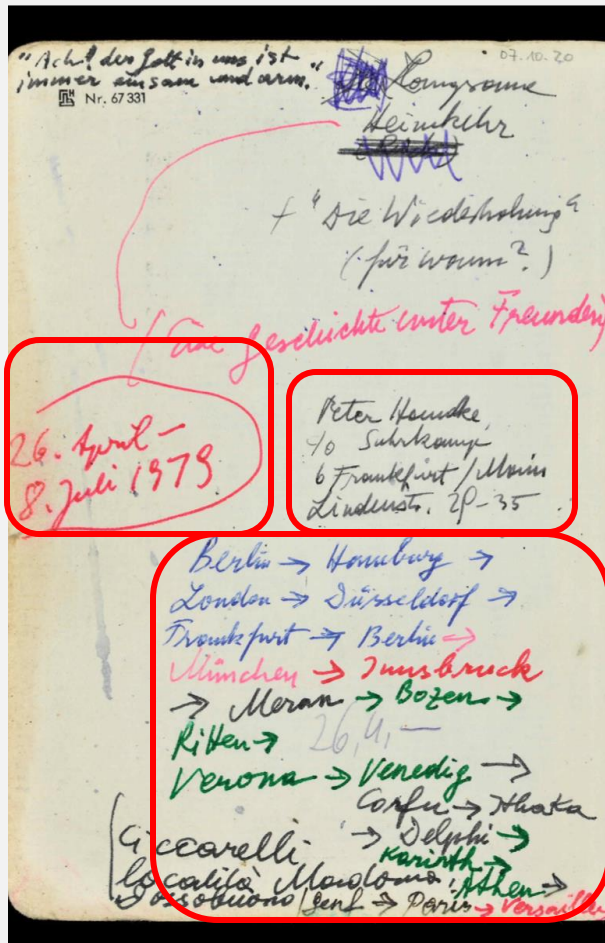 "Ach! der Gott in uns ist
immer einsam und arm."
Nr. 67331
07.10.20
Langsame
Heimkehr
+ "Die Wiederholung"
(für wann?)
(Eine Geschichte unter Freunden)
26. April –
8. Juli 1979
Peter Handke
c/o Suhrkamp
6 Frankfurt/Main
Lindenstr. 29-35
Berlin → Hamburg →
London → Düsseldorf →
Frankfurt → Berlin →
München → Innsbruck
→ Meran → Bozen →
Ritten → 26,4,—
Verona → Venedig →
Corfu → Ithaka
→ Delphi →
Korinth →
Athen →
Ciccarelli
località Madonna
Dossobuono / Genf → Paris → Versailles